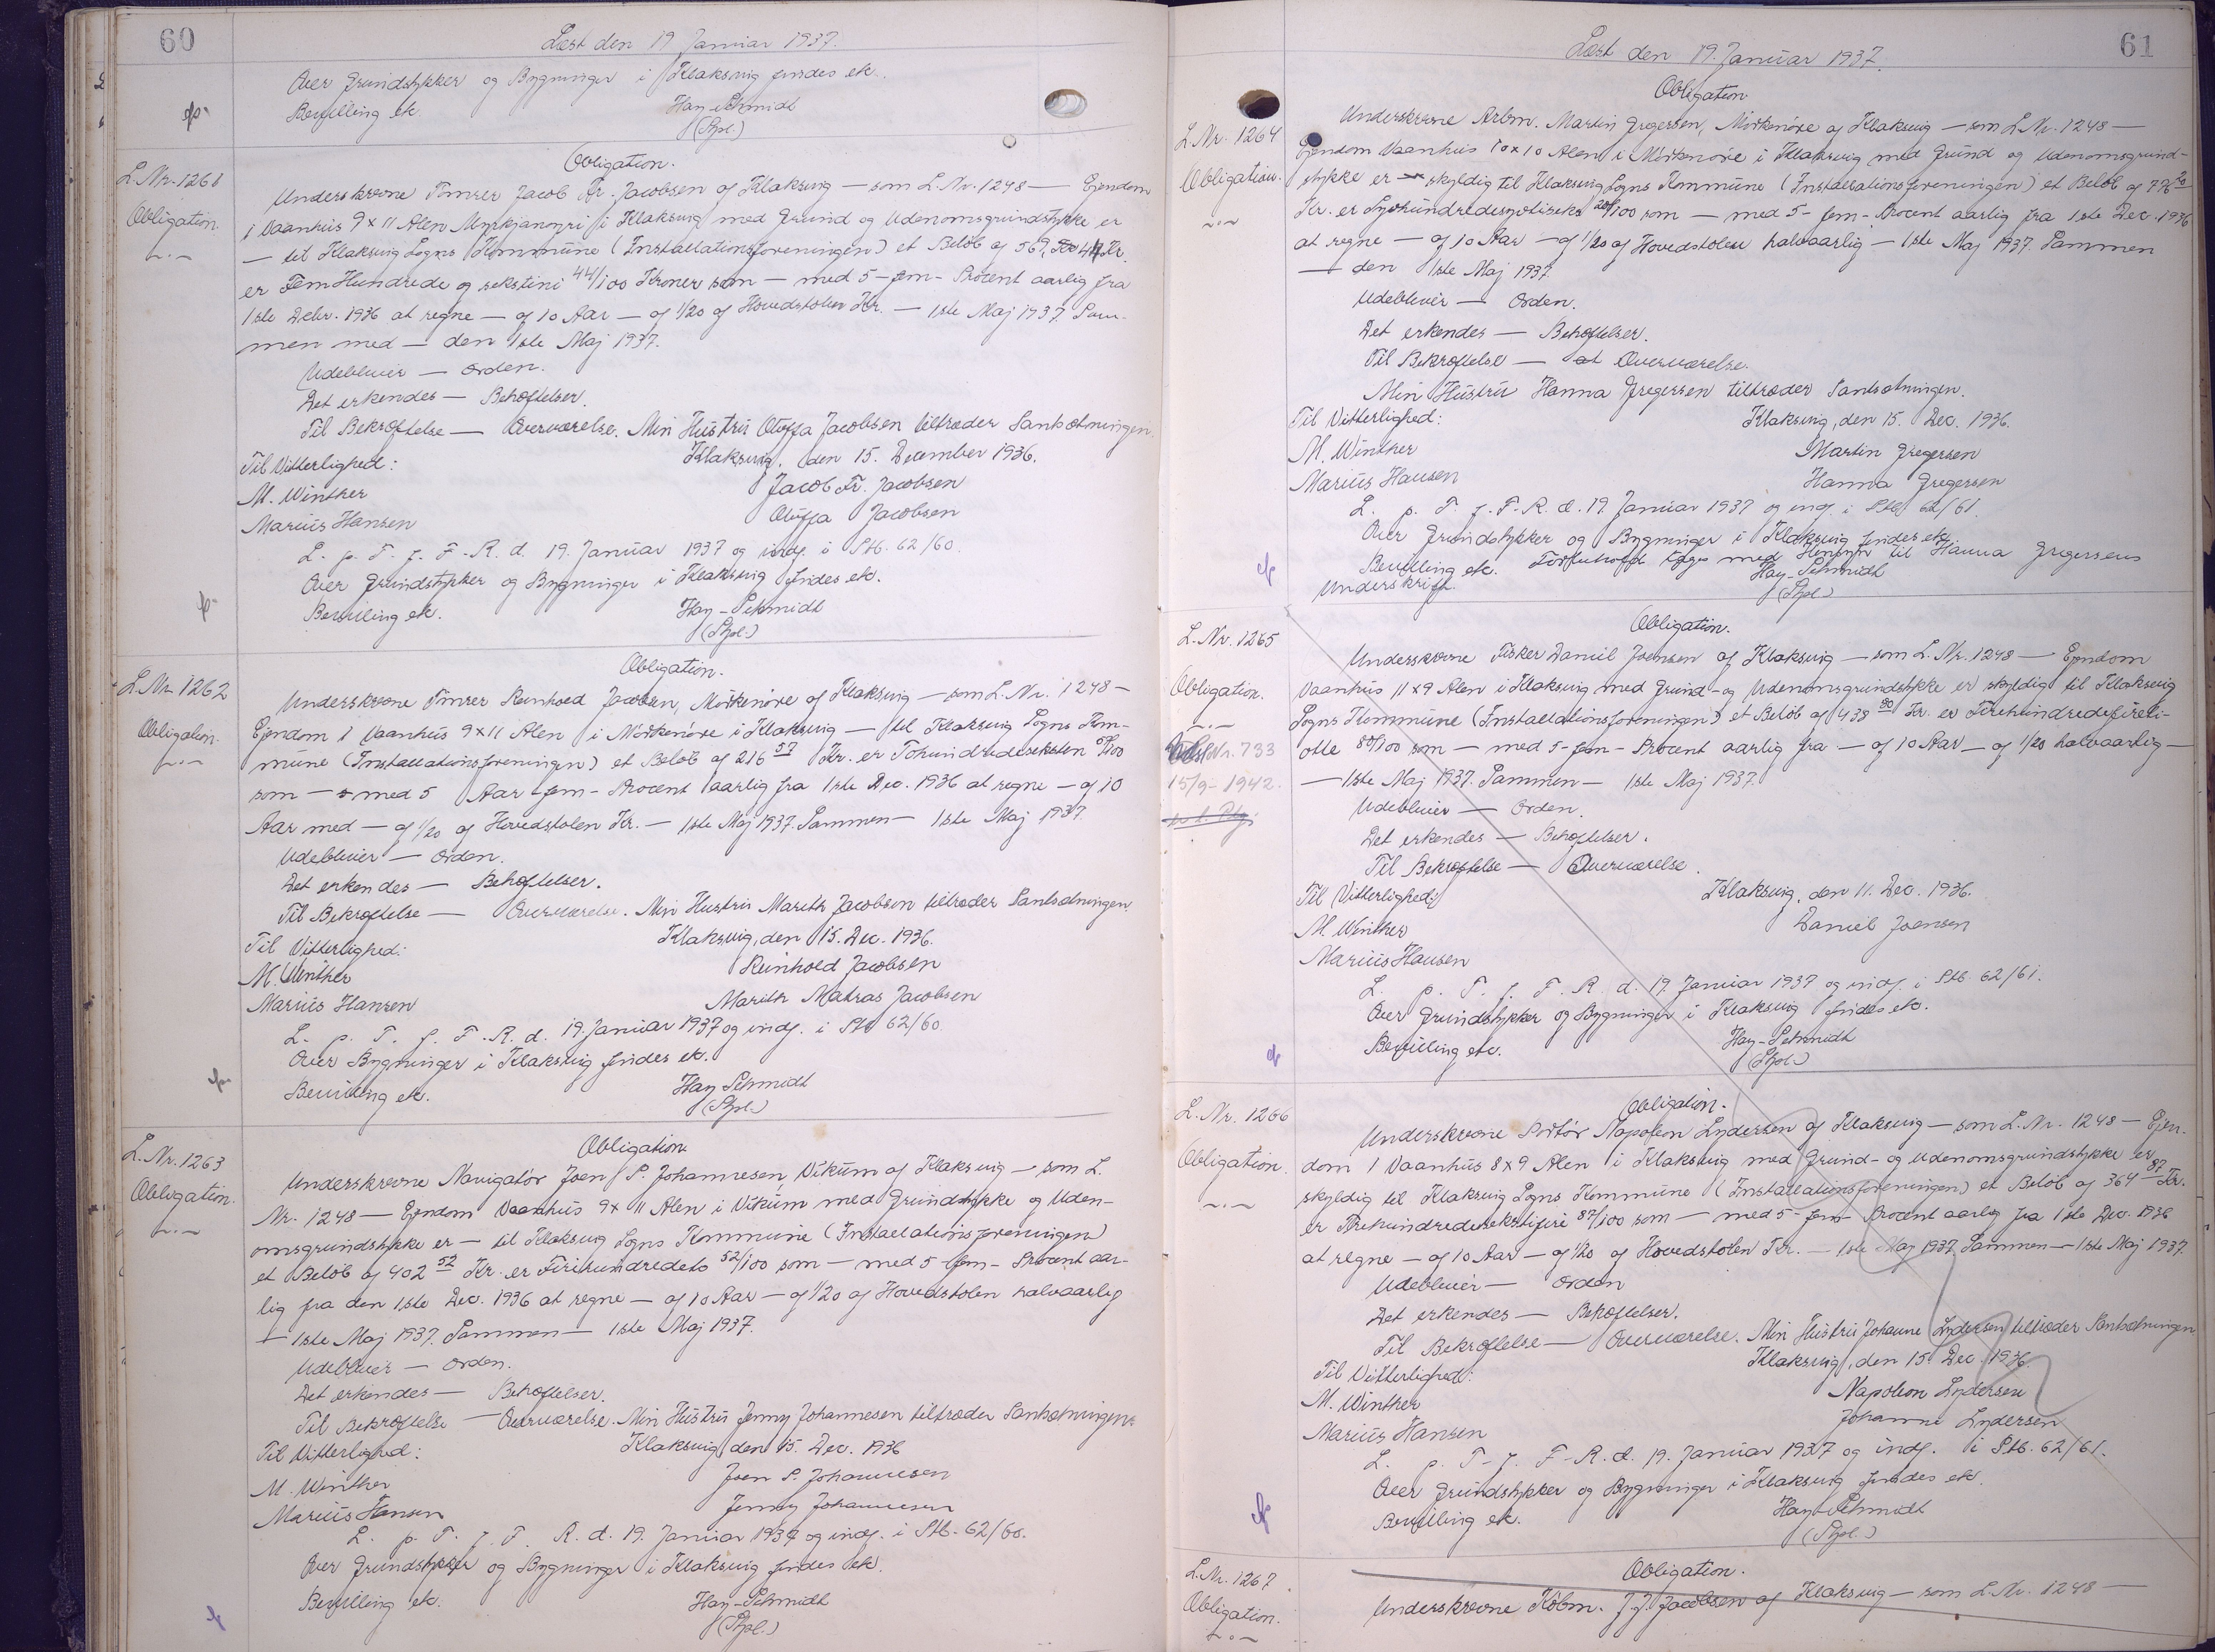 60
Læst den 19 Januar 1937.
Over Grundstykker og Bygninger i Klaksvig findes ek.
Bevilling ek. Hay-Schmidt
(Stpl.)
L.Nr. 1261
Obligation.
Obligation.
Underskrevne Tømrer Jacob Fr. Jacobsen af Klaksvig — som L.Nr. 1248 — Ejendom
1 Vaanhus 9 x 11 Alen Myrkjanoyri i Klaksvig med Grund og Udenomsgrundstykke er
— til Klaksvig Sogns Kommune (Installationsforeningen) et Beløb af 569, 44 Kr.
er Fem Hundrede og sekstini 44/100 Kroner som — med 5 - fem - Procent aarlig fra
1ste Debr. 1936 at regne — af 10 Aar — af 1/20 af Hovedstolen Kr. — 1ste Maj 1937. Sam-
men med — den 1ste Maj 1937.
Udebliver — Orden.
Det erkendes — Behæftelser.
Til Bekræftelse — Overværelse. Min Hustru Oluffa Jacobsen tiltræder Pantsætningen.
Til Vitterlighed: Klaksvig, den 15. December 1936.
M. Winther Jacob Fr. Jacobsen
Marius Hansen Oluffa Jacobsen
L. p. T. f. F.-R. d. 19. Januar 1937 og indf. i Stb. 62/60.
Over Grundstykker og Bygninger i Klaksvig findes ek.
Bevilling ek. Hay-Schmidt
(Stpl.)
L.Nr. 1262
Obligation.
Obligation.
Underskrevne Tømrer Reinhold Jacobsen, Mörkenöre af Klaksvig — som L.Nr. 1248 —
Ejendom 1 Vaanhus 9 x 11 Alen i Mörkenöre i Klaksvig — til Klaksvig Sogns Kom-
mune (Installationsforeningen) et Beløb af 216 57 Kr. er Tohundredeseksten 57/100
som — med 5 Aar fem - Procent aarlig fra 1ste Dec. 1936 at regne — af 10
Aar med — af 1/20 af Hovedstolen Kr. — 1ste Maj 1937. Sammen — 1ste Maj 1937.
Udebliver — Orden.
Det erkendes — Behæftelser.
Til Bekræftelse — Overværelse. Min Hustru Marith Jacobsen tiltræder Pantsætningen.
Til Vitterlighed: Klaksvig, den 15. Dec. 1936.
M. Winther Reinhold Jacobsen
Marius Hansen Marith Matras Jacobsen
L. p. T. f. F.-R. d. 19. Januar 1937 og indf. i Stb 62/60.
Over Bygninger i Klaksvig findes ek.
Bevilling ek. Hay Schmidt
(Stpl.)
L.Nr. 1263
Obligation.
Obligation.
Underskrevne Navigatør Joen S. Johannesen, Vikum af Klaksvig — som L.
Nr. 1248 — Ejendom Vaanhus 9 x 11 Alen i Vikum med Grundstykke og Uden-
omsgrundstykke er — til Klaksvig Sogns Kommune (Installationsforeningen)
et Beløb af 402 52 Kr. er Firehundredeto 52/100 som — med 5 - fem - Procent aar-
lig fra den 1ste Dec. 1936 at regne — af 10 Aar — af 1/20 af Hovedstolen halvaarlig
— 1ste Maj 1937. Sammen — 1ste Maj 1937.
Udebliver — Orden.
Det erkendes — Behæftelser.
Til Bekræftelse — Overværelse. Min Hustru Jenny Johannesen tiltræder Pantsætningen.
Til Vitterlighed: Klaksvig, den 15. Dec. 1936
M. Winther Joen S. Johannesen
Marius Hansen Jenny Johannesen
L. p. T. f. F. R. d. 19. Januar 1937 og indf. i Stb. 62/60.
Over Grundstykker og Bygninger i Klaksvig findes ek.
Bevilling ek. Hay-Schmidt
(Stpl.)
61
Læst den 19. Januar 1937.
L.Nr. 1264
Obligation.
Obligation
Underskrevne Arbm. Martin Gregersen, Mörkenöre af Klaksvig — som L.Nr. 1248 —
Ejendom Vaanhus 10 x 10 Alen i Mörkenöre i Klaksvig med Grund og Udenomsgrund-
stykke er — skyldig til Klaksvig Sogns Kommune (Installationsforeningen) et Beløb af
Kr. er 20/100 som — med 5 - fem - Procent aarlig fra 1ste Dec. 1936
at regne — af 10 Aar — af 1/20 af Hovedstolen halvaarlig — 1ste Maj 1937. Sammen
— den 1ste Maj 1937.
Udebliver — Orden.
Det erkendes — Behæftelser.
Til Bekræftelse — Overværelse.
Min Hustru Hanna Gregersen tiltræder Pantsætningen.
Til Vitterlighed: Klaksvig, den 15. Dec. 1936.
M. Winther Martin Gregersen
Marius Hansen Hanna Gregersen
L. p. T. f. F.-R. d. 19. Januar 1937 og indf. i Stb 62/61.
Over Grundstykker og Bygninger i Klaksvig findes ek.
Bevilling ek. Forbehold tages med Hensyn til Hanna Gregersens
Underskrift. Hay-Schmidt
(Stpl.)
L.Nr. 1265
Obligation.
Nr. 733
15/9-1942.
Obligation.
Underskrevne Fisker Daniel Joensen af Klaksvig — som L.Nr. 1248 — Ejendom
Vaanhus 11 x 9 Alen i Klaksvig med Grund- og Udenomsgrundstykke er skyldig til Klaksvig
Sogns Kommune (Installationsforeningen) et Beløb af 438 80 Kr. er Firehundredefireti-
otte 80/100 som — med 5 - fem - Procent aarlig fra — af 10 Aar — af 1/20 halvaarlig —
— 1ste Maj 1937. Sammen — 1ste Maj 1937.
Udebliver — Orden.
Det erkendes — Behæftelser.
Til Bekræftelse — Overværelse.
Til Vitterlighed: Klaksvig, den 11. Dec. 1936.
M. Winther Daniel Joensen
Marius Hansen
L. p. T. f. F. R. d. 19. Januar 1937 og indf. i Stb. 62/61.
Over Grundstykker og Bygninger i Klaksvig findes ek.
Bevilling ek. Hay-Schmidt
(Stpl.)
L.Nr. 1266
Obligation.
Obligation.
Underskrevne Napoleon Lydersen af Klaksvig — som L.Nr. 1248 — Ejen-
dom 1 Vaanhus 8 x 9 Alen i Klaksvig med Grund- og Udenomsgrundstykke er
skyldig til Klaksvig Sogns Kommune (Installationsforeningen) et Beløb af 364 87 Kr.
er Trehundredesekstifire 87/100 som — med 5 - fem - Procent aarlig fra 1ste Dec. 1936
at regne — af 10 Aar — af 1/20 af Hovedstolen Kr. — 1ste Maj 1937. Sammen — 1ste Maj 1937.
Udebliver — Orden
Det erkendes — Behæftelser.
Til Bekræftelse — Overværelse. Min Hustru Johanne Lydersen tiltræder Pantsætningen
Til Vitterlighed: Klaksvig, den 15 Dec. 1936.
M. Winther Napoleon Lydersen
Marius Hansen Johanne Lydersen
L. p. T. f. F.-R. d. 19. Januar 1937 og indf. i Stb. 62/61.
Over Grundstykker og Bygninger i Klaksvig findes ek.
Bevilling ek. Hay-Schmidt
(Stpl.)
L.Nr. 1267
Obligation.
Obligation.
Underskrevne Købm. J.J. Jacobsen af Klaksvig — som L.Nr. 1248 —